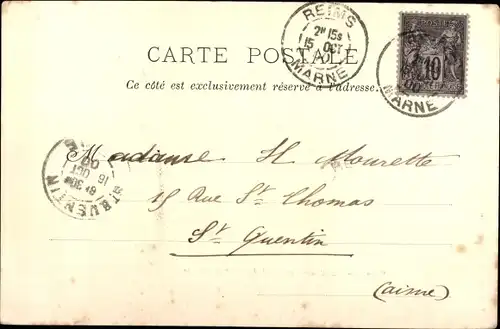 REIMS
2E 15S
15 OCT
MARNE
POSTES
10
MARNE
CARTE POSTALE
Ce côté est exclusivement réservé à l'adresse.
Madame H Mourette
15 Rue St Thomas
St Quentin
(aisne)
ST QUENTIN
8E 30M
16 OCT
00